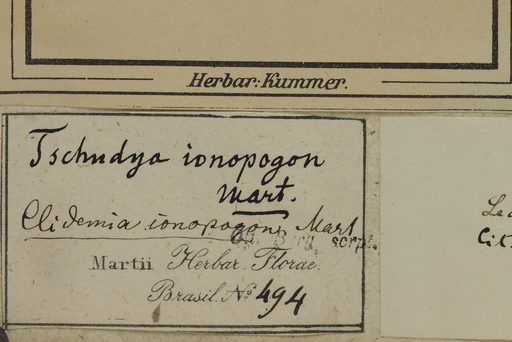 Herbar: Kummer.
Tschudya ionopogon
Mart.
Clidemia ionopogon, Mart
scrpt.
Martii Herbar. Florae.
Brasil. No 494
Le